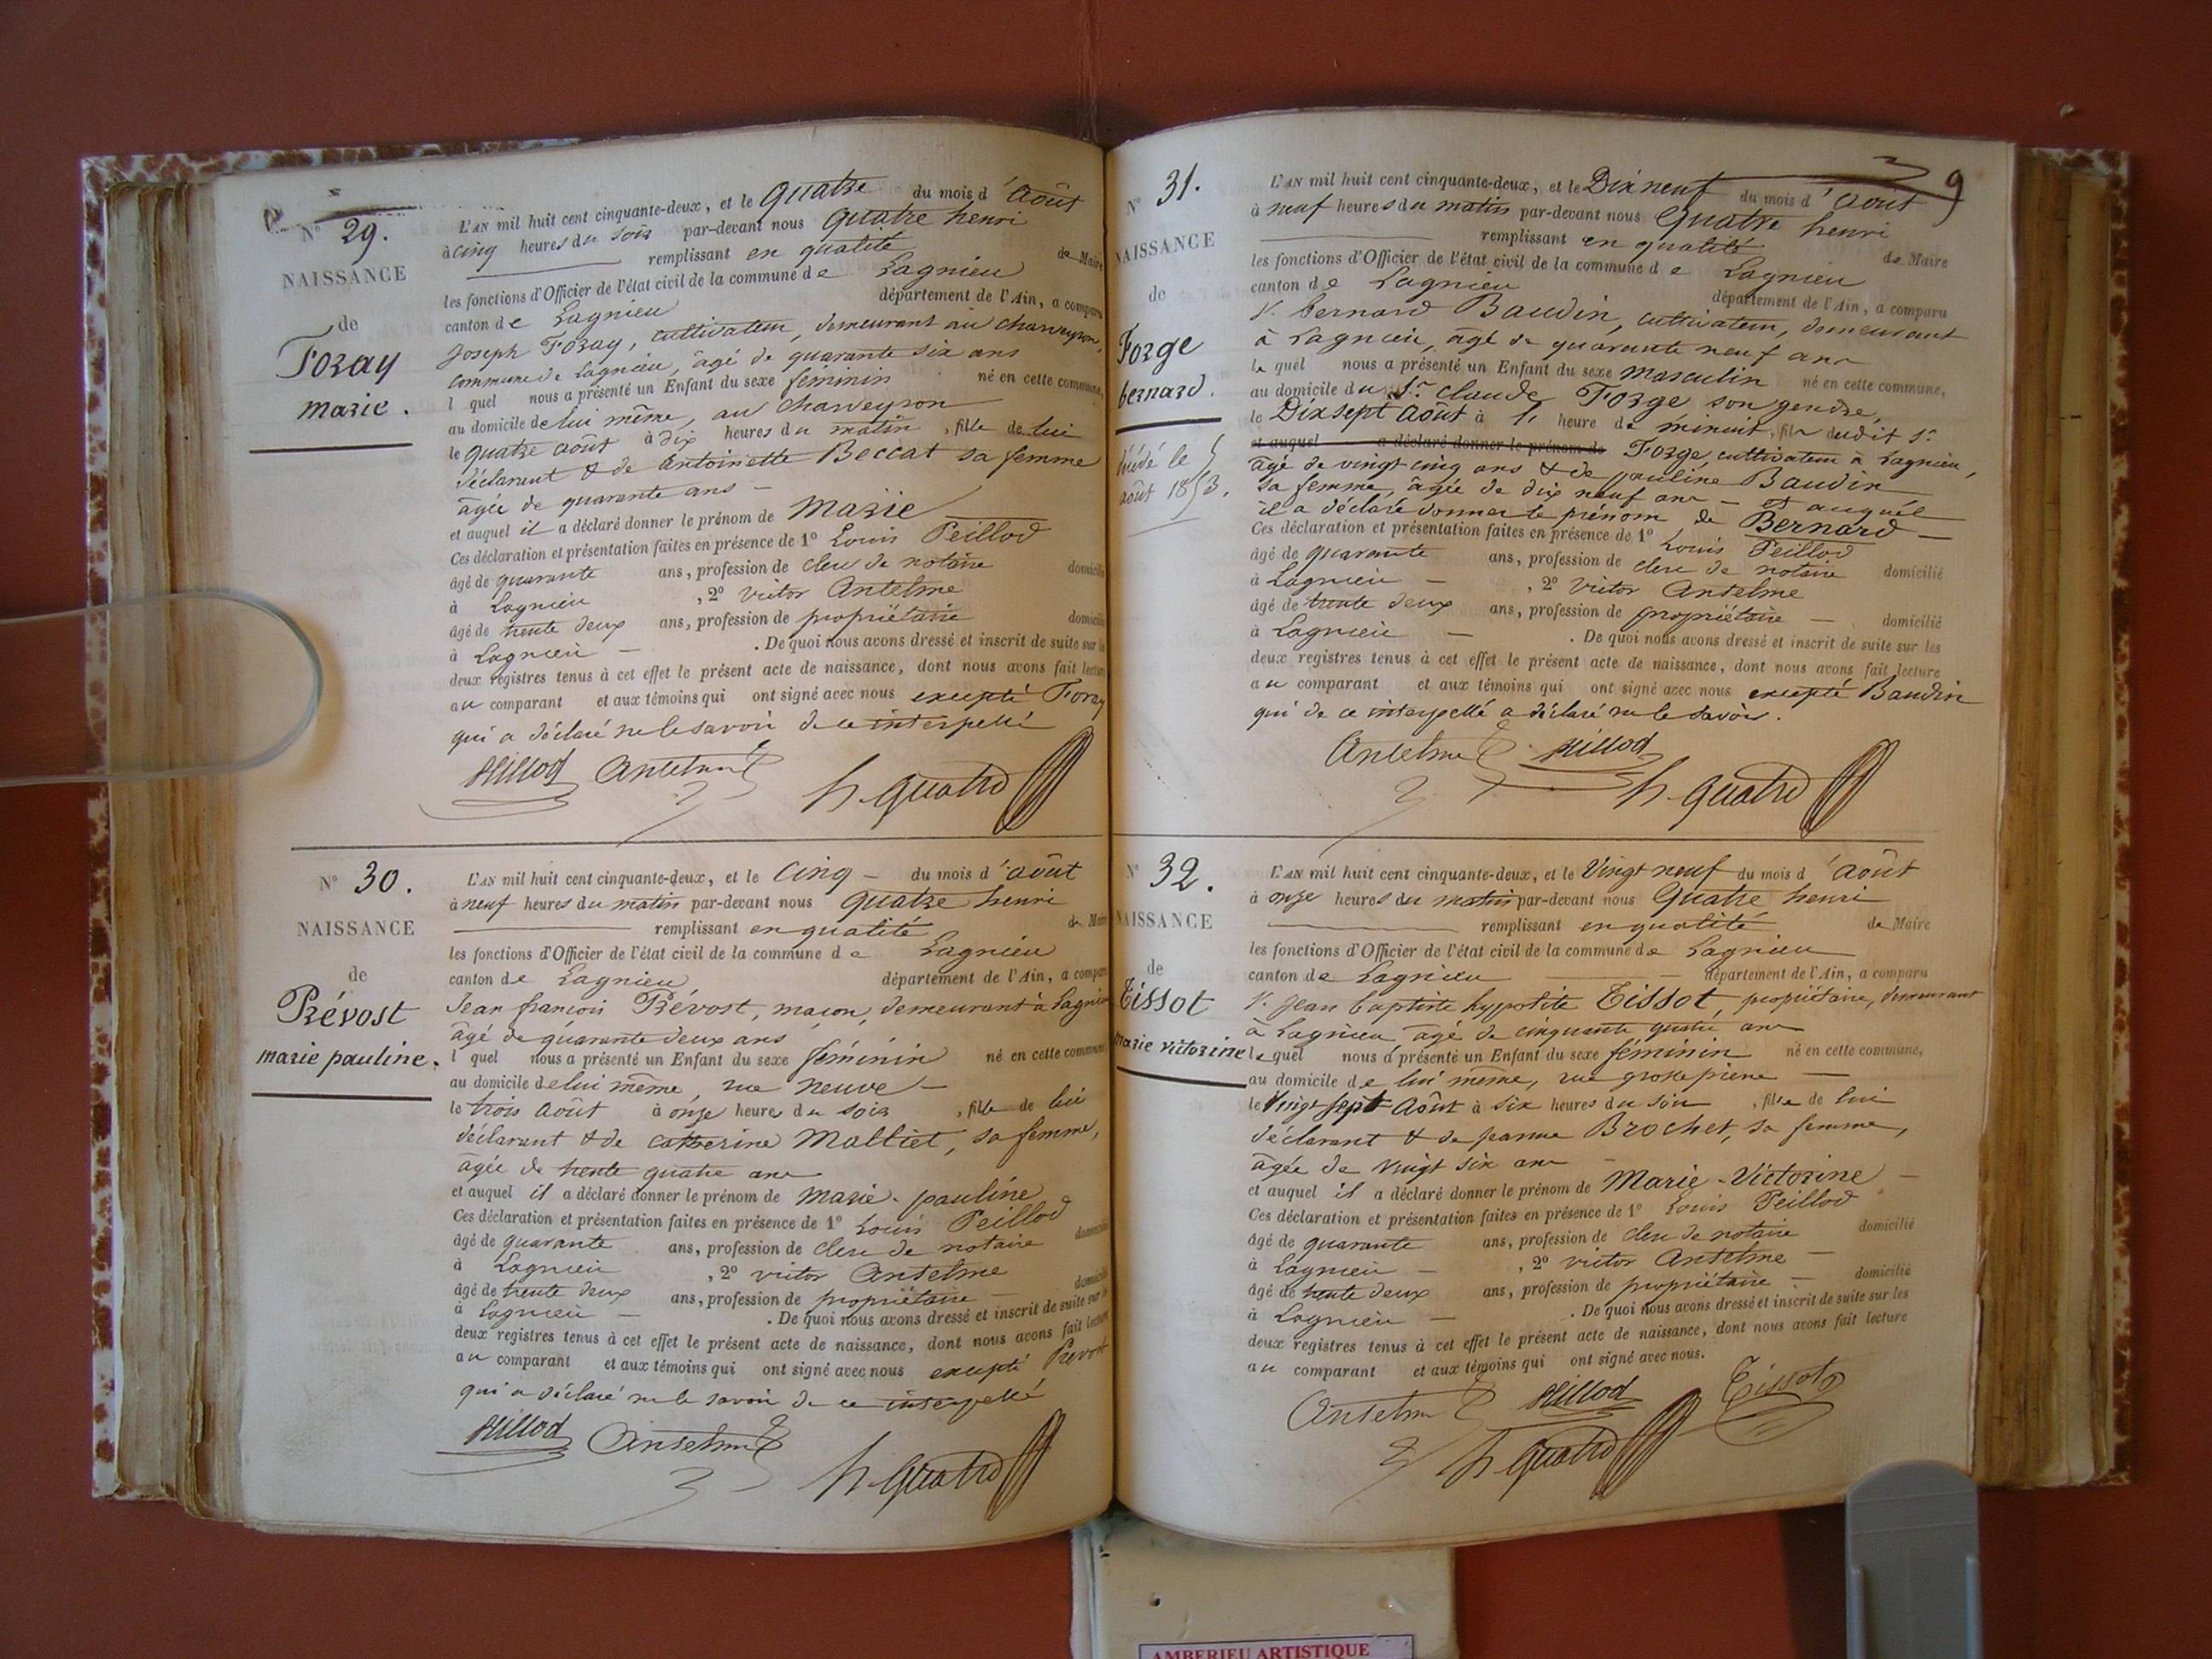 N° 29.
NAISSANCE
de
Foray
marie.
L'AN mil huit cent cinquante-deux, et le quatre du mois d'août
à cinq heures du soir par-devant nous quatre henri
remplissant en qualité de Maire
les fonctions d'Officier de l'état civil de la commune de Lagnieu
canton de Lagnieu département de l'Ain, a comparu
Joseph Foray, cultivateur, demeurant au charveyron,
commune de Lagnieu, âgé de quarante six ans
l quel nous a présenté un Enfant du sexe féminin né en cette commune,
au domicile de lui même, au charveyron
le quatre août à dix heures du matin, fille de lui
déclarant & de antoinette Beccat sa femme
âgée de quarante ans -
et auquel il a déclaré donner le prénom de Marie
Ces déclaration et présentation faites en présence de 1° Louis Peillod
âgé de quarante ans, profession de clerc de notaire domicilié
à Lagnieu, 2° victor Anselme
âgé de trente deux ans, profession de propriétaire domicilié
à Lagnieu - . De quoi nous avons dressé et inscrit de suite sur les
deux registres tenus à cet effet le présent acte de naissance, dont nous avons fait lecture
au comparant et aux témoins qui ont signé avec nous excepté Foray
qui a déclaré ne le savoir de ce interpellé
Peillod Anselme
h. quatre
N° 30.
NAISSANCE
de
Prévost
marie pauline.
L'AN mil huit cent cinquante-deux, et le cinq - du mois d'août
à neuf heures du matin par-devant nous quatre henri
remplissant en qualité de Maire
les fonctions d'Officier de l'état civil de la commune de Lagnieu
canton de Lagnieu département de l'Ain, a comparu
Jean françois Prévost, maçon, demeurant à Lagnieu
âgé de quarante deux ans
l quel nous a présenté un Enfant du sexe féminin né en cette commune,
au domicile de lui même, rue neuve -
le trois août à onze heures du soir, fille de lui
déclarant & de catherine Malliet, sa femme,
âgée de trente quatre ans
et auquel il a déclaré donner le prénom de Marie-pauline
Ces déclaration et présentation faites en présence de 1° Louis Peillod
âgé de quarante ans, profession de clerc de notaire domicilié
à Lagnieu, 2° victor Anselme
âgé de trente deux ans, profession de propriétaire - domicilié
à Lagnieu - . De quoi nous avons dressé et inscrit de suite sur les
deux registres tenus à cet effet le présent acte de naissance, dont nous avons fait lecture
au comparant et aux témoins qui ont signé avec nous excepté Prevost
qui a déclaré ne le savoir de ce interpellé
Peillod Anselme
h. quatre
9
N° 31.
NAISSANCE
de
Forge
bernard.
décédé le 5
août 1853.
L'AN mil huit cent cinquante-deux, et le Dix neuf du mois d'août
à neuf heures du matin par-devant nous quatre henri
remplissant en qualité de Maire
les fonctions d'Officier de l'état civil de la commune de Lagnieu
canton de Lagnieu département de l'Ain, a comparu
s. bernard Baudin, cultivateur, demeurant
à Lagnieu, âgé de quarante neuf ans
le quel nous a présenté un Enfant du sexe masculin né en cette commune,
au domicile du Sr. claude Forge son gendre,
le Dix sept août à 1, heure de minuit, fils dudit Sr.
et auquel a déclaré donner le prénom de Forge, cultivateur à Lagnieu,
âgé de vingt cinq ans & de pauline Baudin
sa femme, âgée de dix neuf ans - Et auquel
il a déclaré donner le prénom de Bernard -
Ces déclaration et présentation faites en présence de 1° Louis Peillod
âgé de quarante ans, profession de clerc de notaire domicilié
à Lagnieu - , 2° victor Anselme
âgé de trente deux ans, profession de propriétaire - domicilié
à Lagnieu - . De quoi nous avons dressé et inscrit de suite sur les
deux registres tenus à cet effet le présent acte de naissance, dont nous avons fait lecture
au comparant et aux témoins qui ont signé avec nous excepté Baudin
qui de ce interpellé a déclaré ne le savoir.
Anselme Peillod
h. quatre
N° 32.
NAISSANCE
de
Tissot
marie victorine
L'AN mil huit cent cinquante-deux, et le Vingt neuf du mois d'août
à onze heures du matin par-devant nous quatre henri
remplissant en qualité de Maire
les fonctions d'Officier de l'état civil de la commune de Lagnieu
canton de Lagnieu - département de l'Ain, a comparu
s. Jean baptiste hyppolite Tissot, propriétaire, demeurant
à Lagnieu âgé de cinquante quatre ans
le quel nous a présenté un Enfant du sexe féminin né en cette commune,
au domicile de lui même, rue grosse pierre -
le Vingt sept août à six heures du soir, fille de lui
déclarant & de jeanne Brochet, sa femme,
âgée de vingt six ans -
et auquel il a déclaré donner le prénom de Marie-Victorine -
Ces déclaration et présentation faites en présence de 1° Louis Peillod
âgé de quarante ans, profession de clerc de notaire domicilié
à Lagnieu - , 2° victor Anselme -
âgé de trente deux ans, profession de propriétaire - domicilié
à Lagnieu - . De quoi nous avons dressé et inscrit de suite sur les
deux registres tenus à cet effet le présent acte de naissance, dont nous avons fait lecture
au comparant et aux témoins qui ont signé avec nous.
Anselme Peillod Tissot
h quatre
AMBERIEU ARTISTIQUE